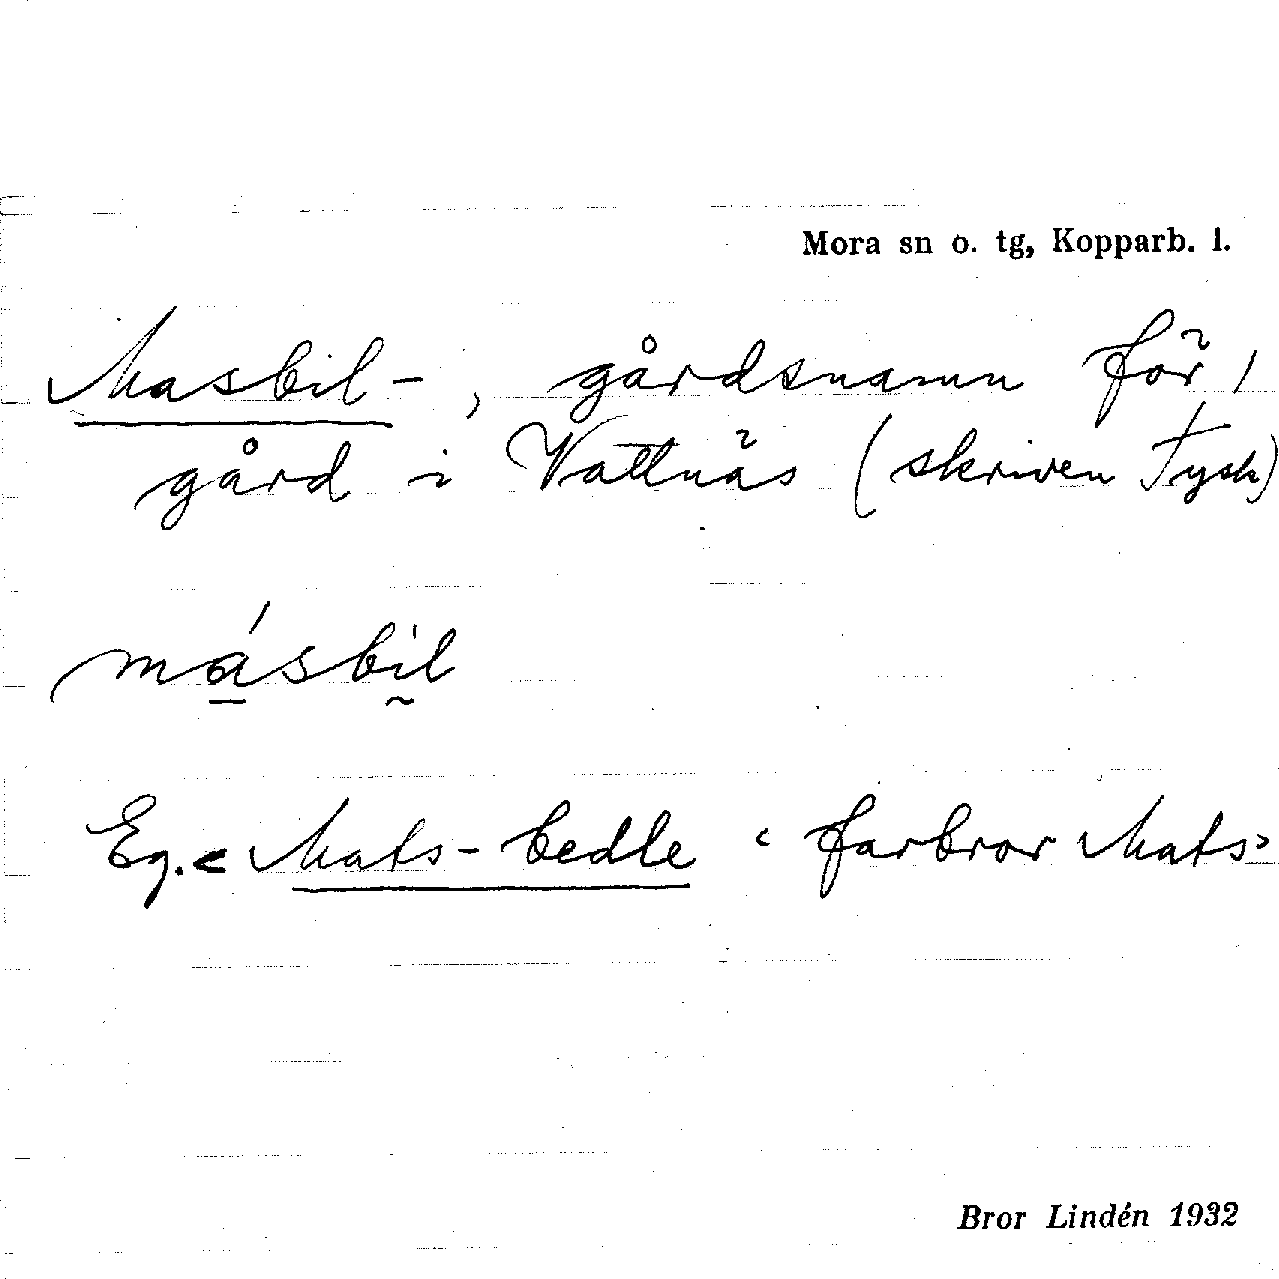 Mora sn o. tg, Kopparb. l.
Masbil-, gårdsnamn för 1
gård i Vattnäs (skriven Tysk)
másbil
Eg. < Mats-bedle ‹farbror Mats›
Bror Lindén 1932